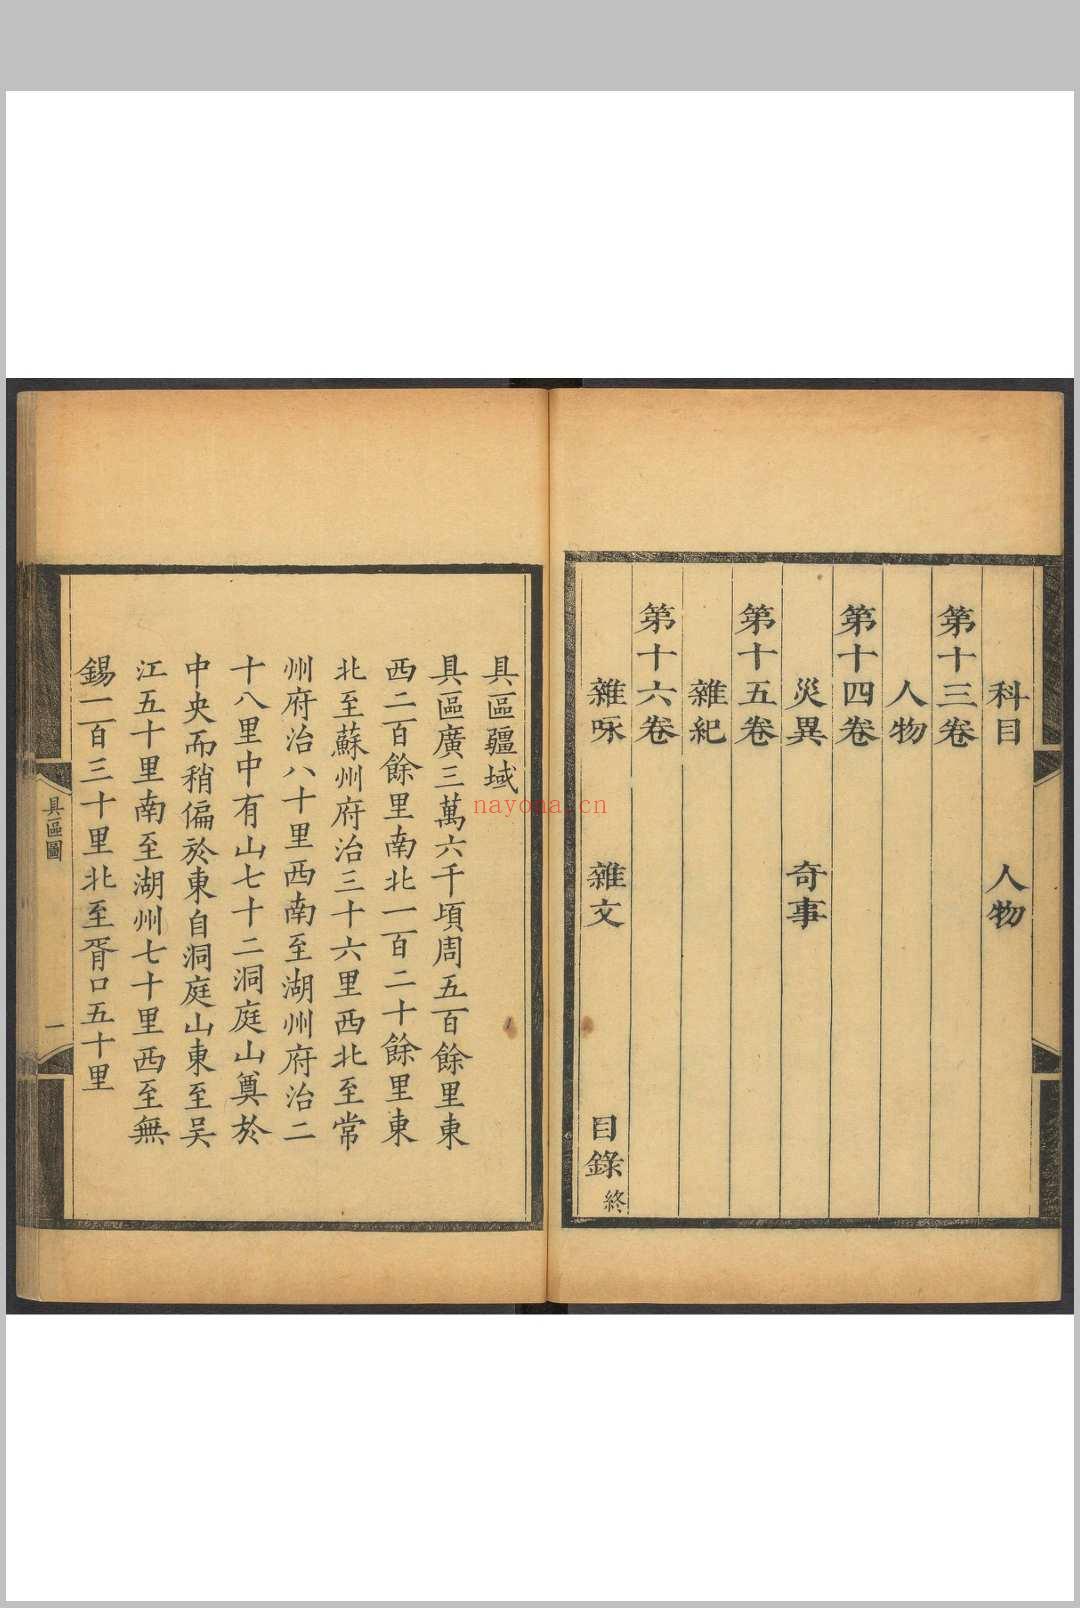 科目　人物
第十三卷
人物
第十四卷
災異　奇事
第十五卷
雜紀
第十六卷
雜咏　雜文　目錄終
具區疆域
具區廣三萬六千頃周五百餘里東
西二百餘里南北一百二十餘里東
北至蘇州府治三十六里西北至常
州府治八十里西南至湖州府治二
十八里中有山七十二洞庭山奠於
中央而稍偏於東自洞庭山東至吳
江五十里南至湖州七十里西至無
錫一百三十里北至胥口五十里
具區圖　一
nayona.cn